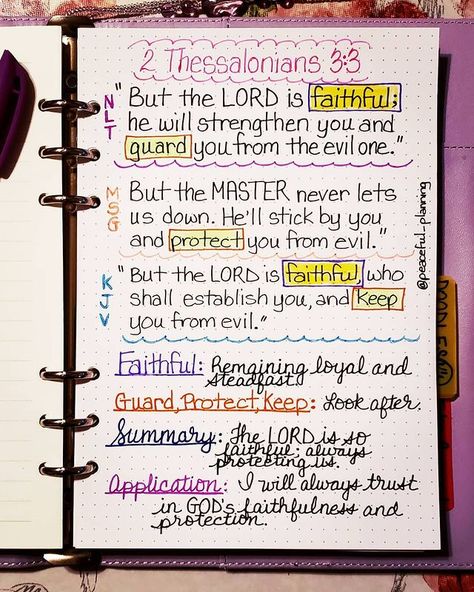 2 Thessalonians 3:3
NLT
"But the LORD is faithful;
he will strengthen you and
guard you from the evil one."
MSG
But the MASTER never lets
us down. He'll stick by you
and protect you from evil."
KJV
"But the LORD is faithful, who
shall establish you, and keep
you from evil."
Faithful: Remaining loyal and
steadfast.
Guard, Protect, Keep: Look after.
Summary: The LORD is so
faithful; always
protecting us.
Application: I will always trust
in GOD's faithfulness and
protection.
@peaceful_planning